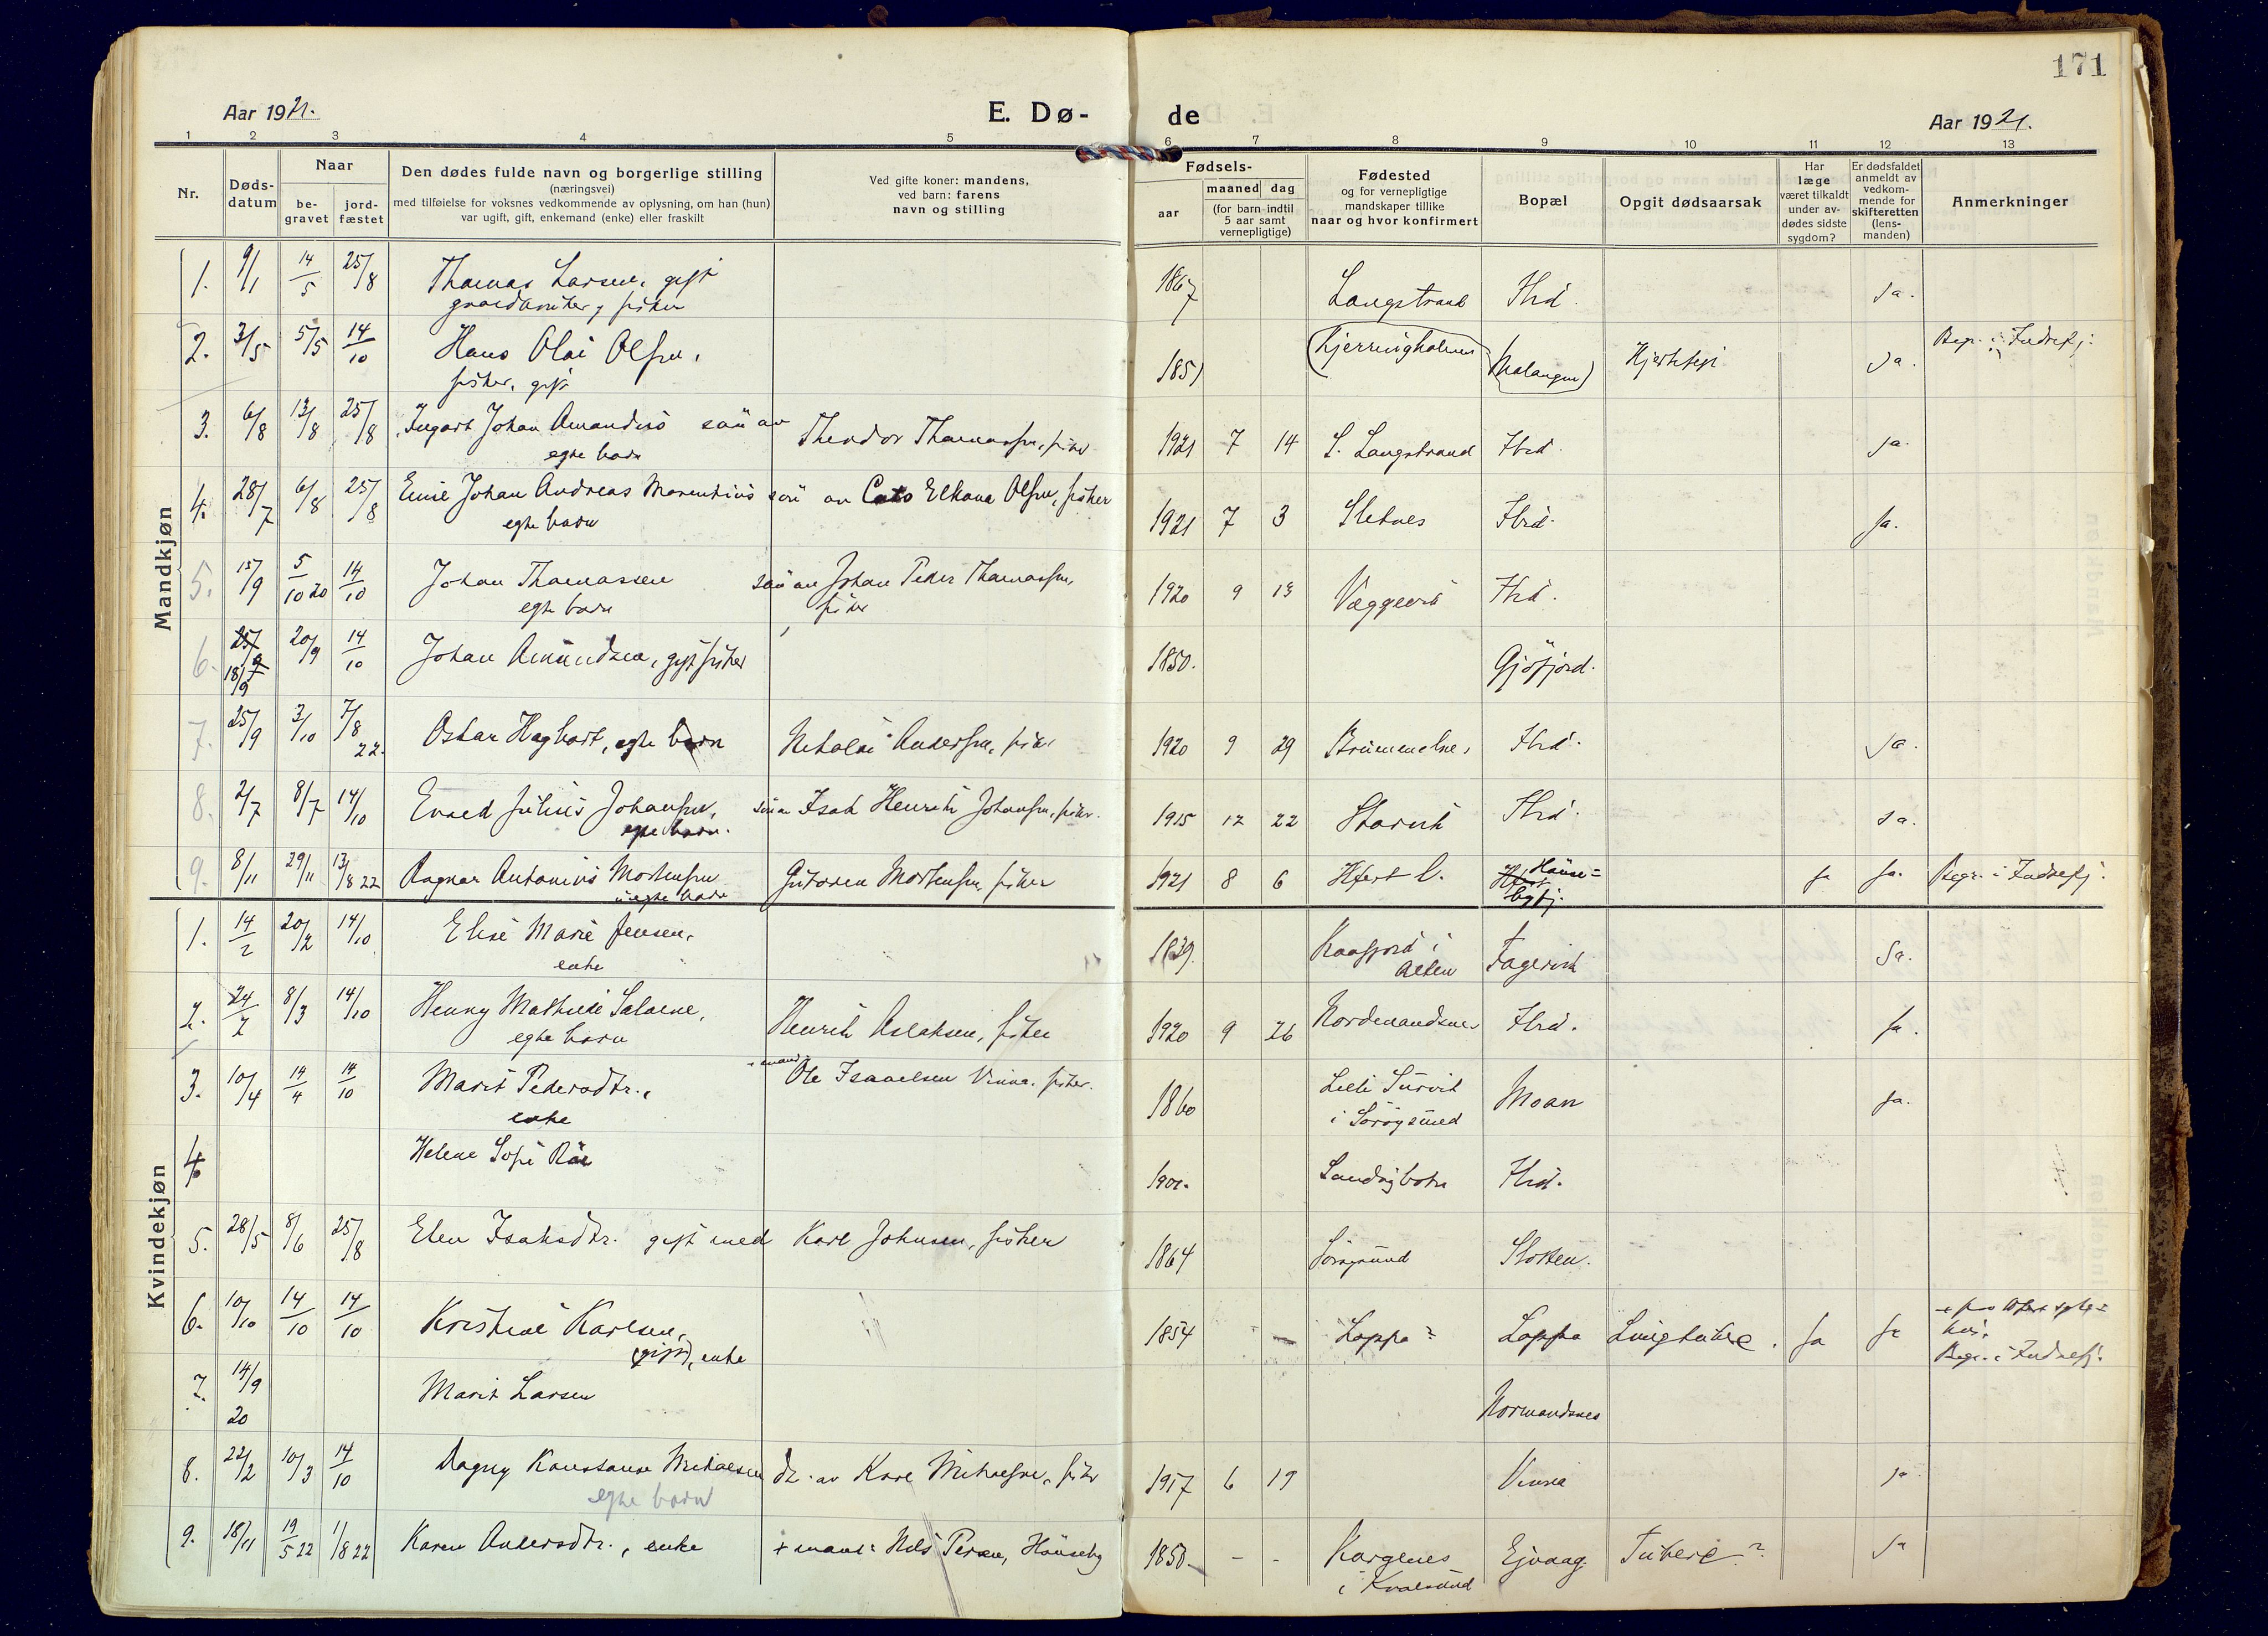 171
Aar 1921.
E. Dø-
de
Aar 1921.
1 2 3 4 5 6 7 8 9 10 11 12 13
Nr.
Døds-
datum
Naar
be-
gravet
jord-
fæstet
Den dødes fulde navn og borgerlige stilling
(næringsvei)
med tilføielse for voksnes vedkommende av oplysning, om han (hun)
var ugift, gift, enkemand (enke) eller fraskilt
Ved gifte koner: mandens,
ved barn: farens
navn og stilling
Fødsels-
aar
maaned dag
(for barn indtil
5 aar samt
vernepligtige)
Fødested
og for vernepligtige
mandskaper tillike
naar og hvor konfirmert
Bopæl
Opgit dødsaarsak
Har
læge
været tilkaldt
under av-
dødes sidste
sygdom?
Er dødsfaldet
anmeldt av
vedkom-
mende for
skifteretten
(lens-
manden)
Anmerkninger
Mandkjøn
1. 9/1 14/5 25/8 Thomas Larsen, gift 1867 Langstrand Ibid. Ja.
gaardbruker, fisker
2. 3/5 5/5 14/10 Hans Olai Olsen, 1851 Kjerringholmen (Malangen) Hjertefeil Ja. Begr. i Indrefj.
fisker, gift
3. 6/8 13/8 25/8 Ingart Johan Amandus søn av Theodor Thomassen, fisker 1921 7 14 S. Langstrand Ibid. Ja.
egte barn
4. 28/7 6/8 25/8 Emil Johan Andreas Marentius søn av Cato Elkana Olsen, fisker 1921 7 3 Sletnes Ibid. Ja.
egte barn
5. 15/9 5/10 20 14/10 Johan Thomassen søn av Johan Peder Thomassen, 1920 9 13 Væggevik Ibid.
egte barn fisker
6. 18/9 20/9 14/10 Johan Amundsen, gift fisker 1850. Gjøfjord.
7. 25/9 3/10 7/8 22. Oskar Hagbart, egte barn Nikolai Andersen, fisker 1920 9 29 Ibid. Ja.
8. 2/7 8/7 14/10 Julius Johansen, søn av Isak Henrik Johansen, fisker. 1915 12 22 Storvik Ibid. Ja.
egte barn.
9. 8/11 29/11 13/8 22 Ragnar Antonius Mortensen Mortensen, fisker 1921 8 6 Hfest Ja Ja. Begr. i Indrefj.
uegte barn
Kvindekjøn
1. 14/2 20/2 14/10 Elise Marie Jensen, 1839. Kaafjord i Fagervik Ja.
enke Alten
2. 24/2 8/3 14/10 Henny Mathilde Salome, Henrik Aslaksen, fisker 1920 9 26 Nordmandsnes Ibid. Ja.
egte barn
3. 10/4 14/4 14/10 Marit Pedersdtr., + mand: Ole Isaaelsen Vinna. fisker. 1860 Lille Survik Moan Ja.
enke i Sørøysund
4. Helene Sofie 1901. Sandøybotn Ibid.
5. 28/5 8/6 25/8 Elen Isaksdtr. gift med Karl Johnsen, fisker 1864 Sørøysund Slotten.
6. 10/10 14/10 14/10 Kristine Karlsen, 1854 Loppa? Loppa Lungetuberc. Ja Ja
(gift), enke Begr. i Indrefj.
7. 14/9 20 Marit Larsen Normandsnes
8. 22/2 10/3 14/10 Dagny Konstanse Mikalsen dr. av Karl Mikalsen, fisker 1917 6 19 Vinna Ja.
egte barn
9. 18/11 19/5 22 1/8 22 Karen Andersdtr., enke + mand: Nils Persen, Hønseby 1850 - - Kargenes Ejvaag Tuberc? Ja
i Kvalsund